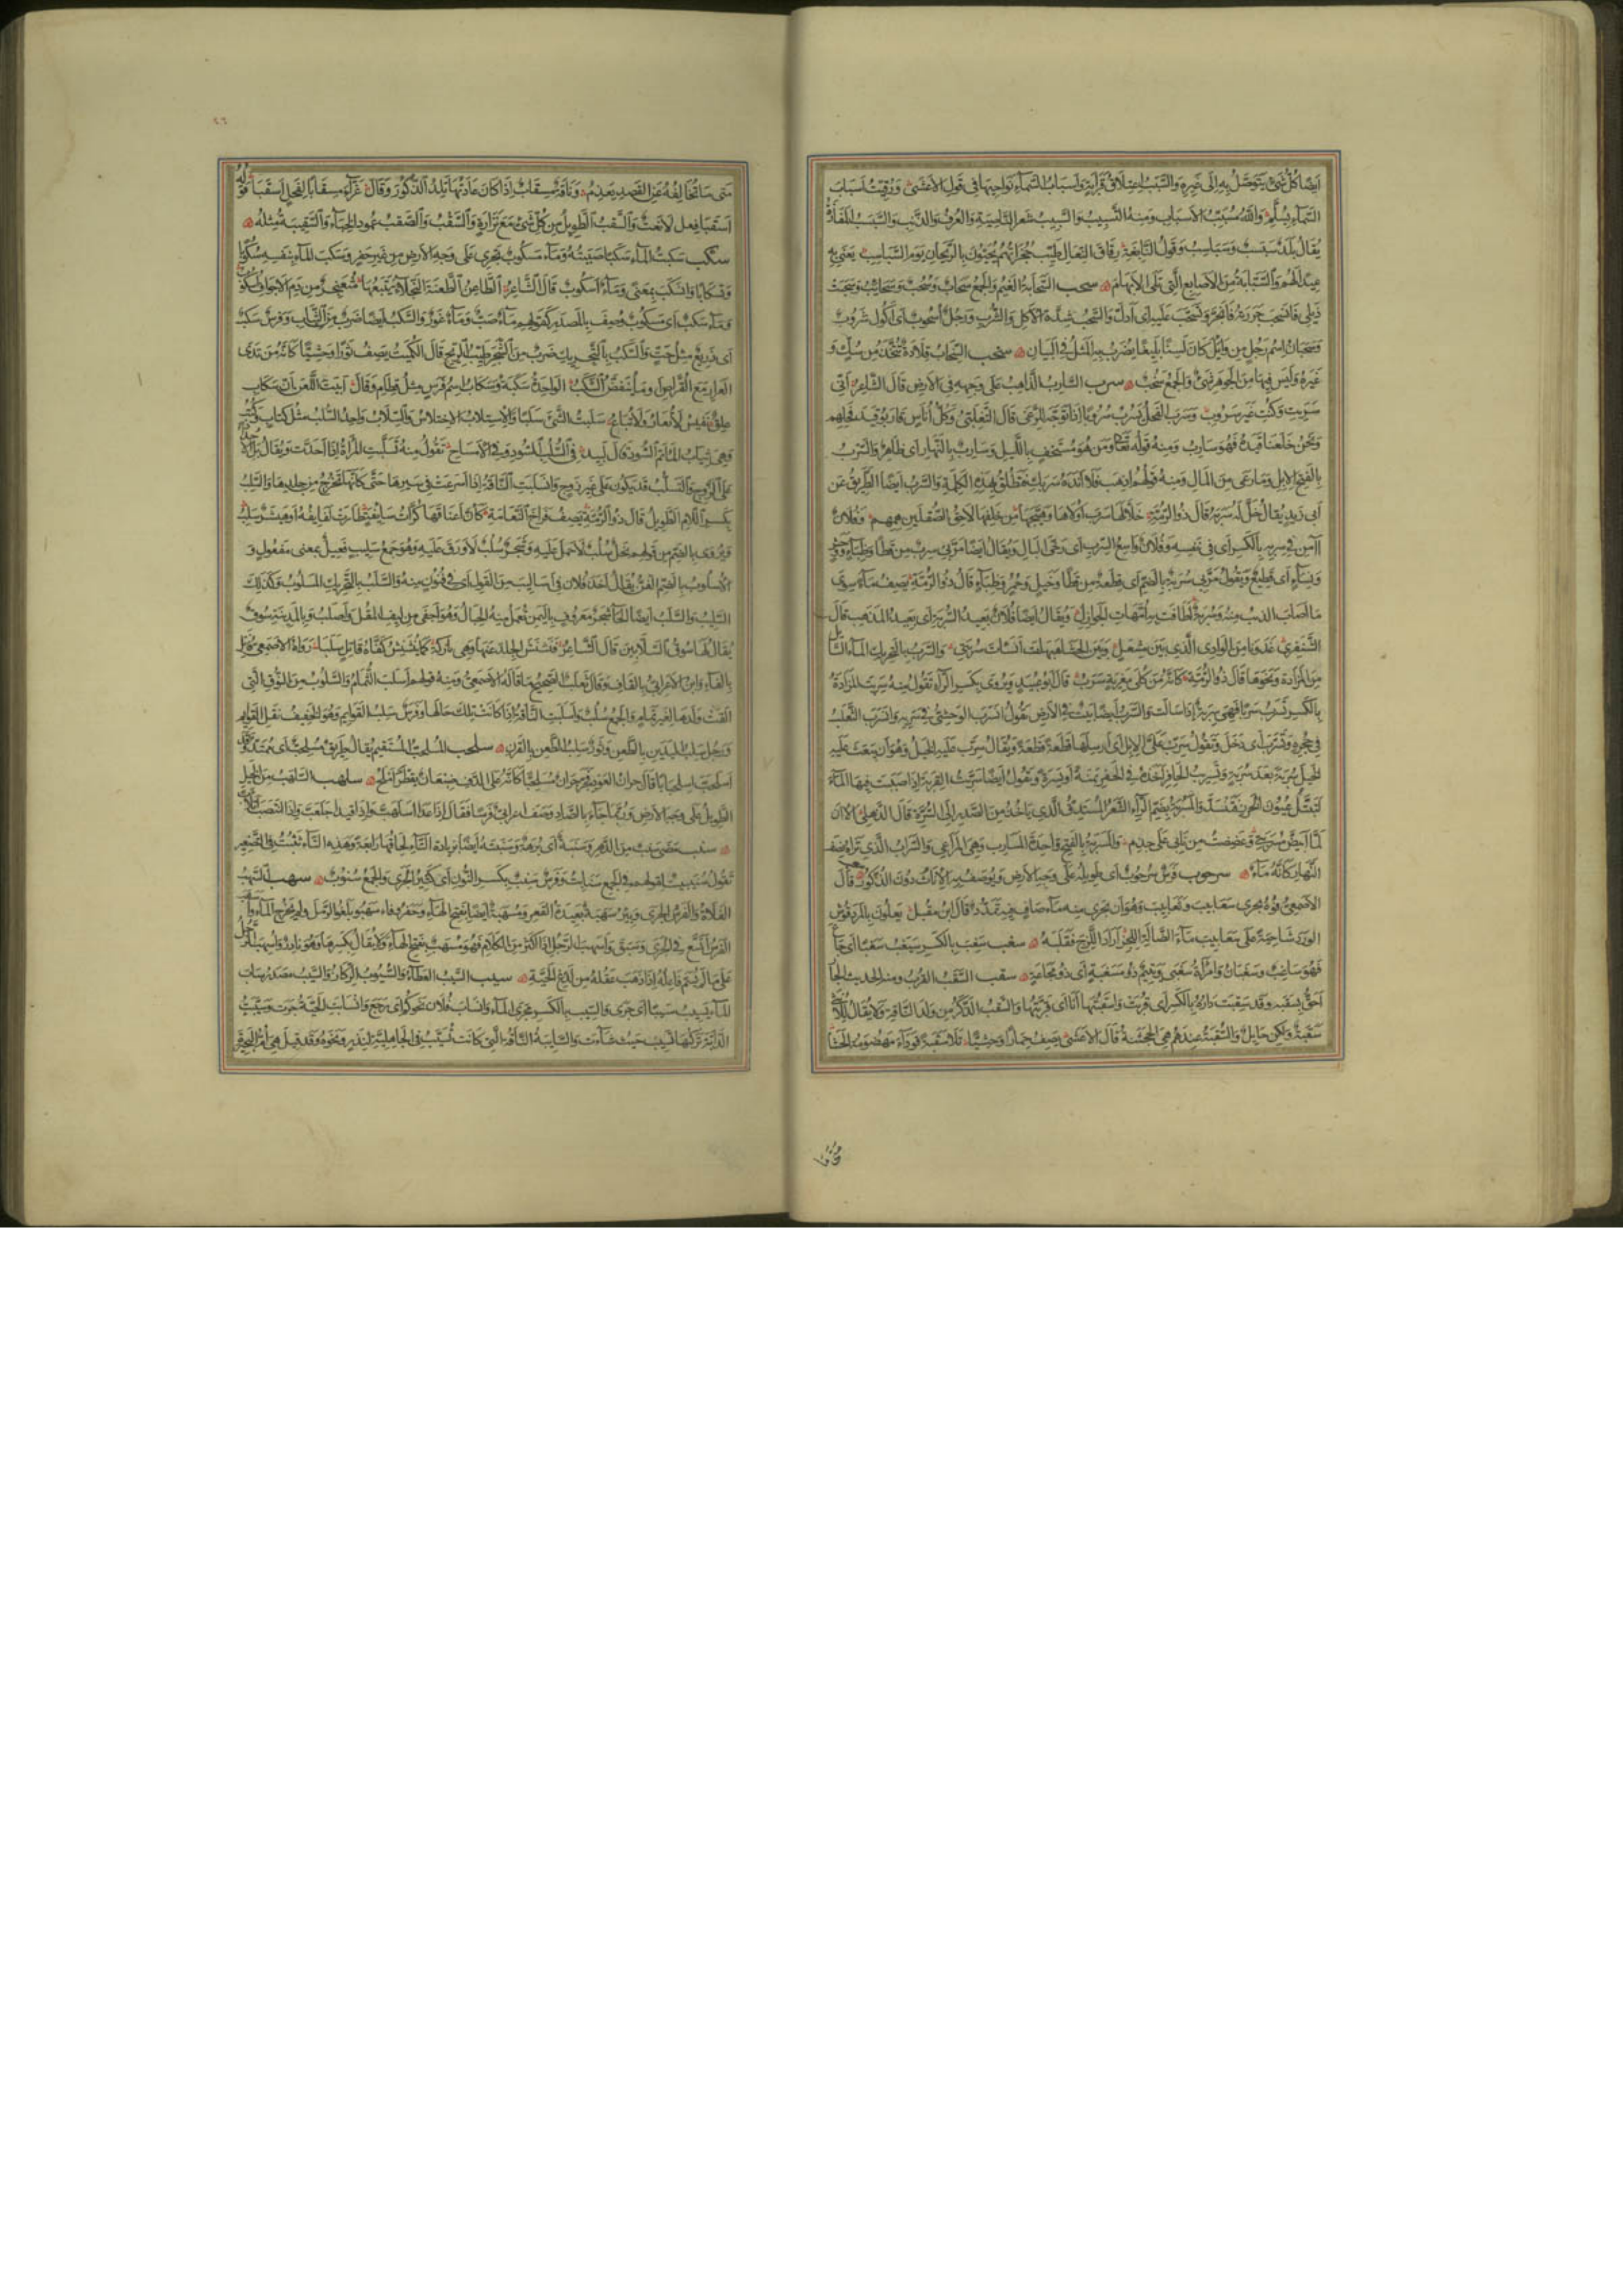 ايضا كل شئ يتوصل به الى غيره والسبب اعتلاق قرابة واسباب السماء نواحيها في قول الاعشى ورقيت اسباب
السماء بسلم والله مسبب الاسباب ومنه التسبيب والسبيب شعر الناصية والعرف والذنب والسبسب المفازة
يقال بلد سبسب وسباسب وقول النابغة رقاق النعال طيب حجزاتهم يحيون بالريحان يوم السباسب يعني به
عيدا لهم والسبابة من الاصابع التي تلي الابهام سحب السحابة الغيم والجمع سحاب وسحب وسحائب وسحبت
ذيلي فانسحب جررته فانجر وتسحب عليه اى ادل والسحب شدة الاكل والشرب ورجل اسحوب اى اكول شروب
وسحبان اسم رجل من وائل كان لسنا بليغا يضرب به المثل في البيان سخب السخاب قلادة تتخذ من سك و
غيره وليس فيها من الجوهر شئ والجمع سخب سرب السارب الذاهب على وجهه في الارض قال الشاعر انى
سربت وكنت غير سروب وسرب الفحل يسرب سروبا اذا توجه للرعى قال التغلبي وكل اناس قاربوا قيد فحلهم
ونحن خلعنا قيده فهو سارب ومنه قوله تعالى ومن هو مستخف بالليل وسارب بالنهار اى ظاهر والسرب
بالفتح الابل وما رعى من المال ومنه قولهم اذهب فلا انده سربك فتطلق بهذه الكلمة والسرب ايضا الطريق عن
ابي زيد يقال خل له سربه قال ذو الرمة خلا لها سرب اولاها وهيجها من خلفها لاحق الصقلين همهيم وفلان
آمن في سربه بالكسر اى في نفسه وفلان واسع السرب اى رخى البال ويقال ايضا مر بي سرب من قطا وظباء ووحش
ونساء اى قطيع وتقول مر بي سربة بالضم اى قطعة من قطا وخيل وحمر وظباء قال ذو الرمة يصف ماء سوى
ما اصاب الذئب منه وسربة اطافت به من امهات الجوازل ويقال ايضا فلان بعيد السربة اى بعيد المذهب قال
الشنفرى غدونا من الوادي الذي بين مشعل وبين الحشا هيهات انسات سربتي والسرب بالتحريك الماء السائل
من المزادة ونحوها قال ذو الرمة كانه من كلى مفرية سرب قال ابو عبيد ويروى بكسر الراء تقول منه سربت المزادة
بالكسر تسرب سربا فهي سربة اذا سالت والسرب ايضا بيت في الارض تقول انسرب الوحشي في سربه وانسرب الثعلب
في جحره وتسرب اى دخل وتقول سرب على الابل اى ارسلها قطعة قطعة ويقال سرب عليه الخيل وهو ان يبعث عليه
الخيل سربة بعد سربة وتسريب الحافر اخذه في الحفر يمنة او يسرة وتقول ايضا سربت القربة اذا صببت فيها الماء
لتبتل عيون الخرز فتنسد والمسربة بضم الراء الشعر المستدق الذي ياخذ من الصدر الى السرة قال الذهلي الآن
لما ابيض مسربتي وعضضت من نابي على جذم والمسربة بالفتح واحدة المسارب وهي المراعي والسراب الذي تراه نصف
النهار كانه ماء سرحوب فرس سرحوب اى طويلة على وجه الارض ويوصف به الاناث دون الذكور سعب قال
الاصمعي فوه يجري سعابيب وثعابيب وهو ان يجري منه ماء صاف فيه تمدد قال ابن مقبل يعلون بالمردقوش
الورد ضاحية على سعابيب ماء الضالة اللجز اراد اللزج فقلبه سغب سغب بالكسر يسغب سغبا اى جاع
فهو ساغب وسغبان وامراة سغبى ويتيم ذو مسغبة اى ذو مجاعة سقب السقب القرب ومنه الحديث الجار
احق بسقبه وقد سقبت داره بالكسر اى قربت واسقبتها انا اى قربتها والسقب الذكر من ولد الناقة ولا يقال للانثى
سقبة ولكن حائل والسقبة عندهم هي الجحشة قال الاعشى يصف حمارا وحشيا تلا سقبة قوداء مهضومة الحشا
متى ما
متى ما تخالفه عن القصد يعذم وناقة مسقاب اذا كان عادتها ان تلد الذكور وقال غراء مسقابا لفحل اسقبا قوله
اسقبا فعل لا نعت والسقب الطويل من كل شئ مع ترارة والسقب والصقب عمود الخباء والسقيبة مثله
سكب سكبت الماء سكبا صببته وماء سكوب يجري على وجه الارض من غير حفر وسكب الماء بنفسه سكوبا
وتسكابا وانسكب بمعنى وماء اسكوب قال الشاعر الطاعن الطعنة النجلاء يتبعها مثعنجر من دم الاجواف اسكوب
وماء سكب اى مسكوب وصف بالمصدر كقولهم ماء صب وماء غور والسكب ايضا ضرب من الثياب وفرس سكب
اى ذريع مثل حت والسكب بالتحريك ضرب من الشجر طيب الريح قال الكميت يصف ثورا وحشيا كانه من ندى
العرار مع القراص وما ينفض السكب الواحدة سكبة وسكاب اسم فرس مثل قطام وقال ابيت اللعن ان سكاب
علق نفيس لا تعار ولا تباع سلب سلبت الشئ سلبا والاستلاب الاختلاس والسلاب واحد السلب مثل كتاب وكتب
وهي ثياب الماتم السود قال لبيد في السلب السود وفي الامساح تقول منه تسلبت المراة اذا احدت ويقال بل الاحداد
على الزوج والتسلب قد يكون على غير زوج وانسلبت الناقة اذا اسرعت في سيرها حتى كانها تخرج من جلدها والسلب
بكسر اللام الطويل قال ذو الرمة يصف فراخ النعامة كان اعناقها كراث سائفة طارت لفائفه او هيشر سلب
ويروى بالضم من قولهم نخل سلب لا حمل عليه وشجر سلب لا ورق عليه وهو جمع سليب فعيل بمعنى مفعول و
الاسلوب بالضم الفن يقال اخذ فلان في اساليب من القول اى في فنون منه والسلب بالتحريك المسلوب وكذلك
السليب والسلب ايضا لحاء شجر معروف باليمن تعمل منه الحبال وهو اجفى من ليف المقل واصلب وبالمدينة سوق
يقال لها سوق السلابين قال الشاعر فنشنش الجلد عنها وهي باركة كما تنشنش كفا قاتل سلبا رواه الاصمعي فاتل
بالفاء وابن الاعرابي بالقاف وقال ثعلب الصحيح ما قاله الاصمعي ومنه قولهم اسلب الثمام والسلوب من النوق التي
القت ولدها لغير تمام والجمع سلب واسلبت الناقة اذا كانت تلك حالها وفرس سلب القوائم وهو الخفيف نقل القوائم
ورجل سلب اليدين بالطعن وثور سلب الطعن بالقرن سلحب المسلحب المستقيم يقال طريق مسلحب اى ممتد وقد
اسلحب اسلحبابا قال جران العود فخر جران مسلحبا كانه على الدف ضبعان تقطر املح سلهب السلهب من الخيل
الطويل على وجه الارض وربما جاء بالصاد وصف اعرابي فرسا فقال اذا عدا اسلهب واذا قيد اجلعب واذا انتصب اتلاب
سنب مضى سنب من الدهر وسنبة اى برهة وسنبتة ايضا بزيادة التاء والحاقها رابعة وهذه التاء تثبت في التصغير
تقول سنيبتة لقولهم في الجمع سنابت وفرس سنب بكسر النون اى كثير الجري والجمع سنوب سهب السهب
الفلاة والفرس الجري وبئر سهبة بعيدة القعر ومسهبة ايضا بفتح الهاء وحفروا فاسهبوا بلغوا الرمل ولم يخرج الماء واسهب
الفرس اتسع في الجري وسبق واسهب الرجل اذا اكثر من الكلام فهو مسهب بفتح الهاء ولا يقال بكسرها وهو نادر واسهب الرجل
على ما لم يسم فاعله اذا ذهب عقله من لدغ الحية سيب السيب العطاء والسيوب الركاز والسيب مصدر ساب
الماء يسيب سيبا اى جرى والسيب بالكسر مجرى الماء وانساب فلان نحوكم اى رجع وانسابت الحية جرت وسيبت
الدابة تركتها تسيب حيث شاءت والسائبة الناقة التي كانت تسيب في الجاهلية لنذر ونحوه وقد قيل هي ام البحيرة